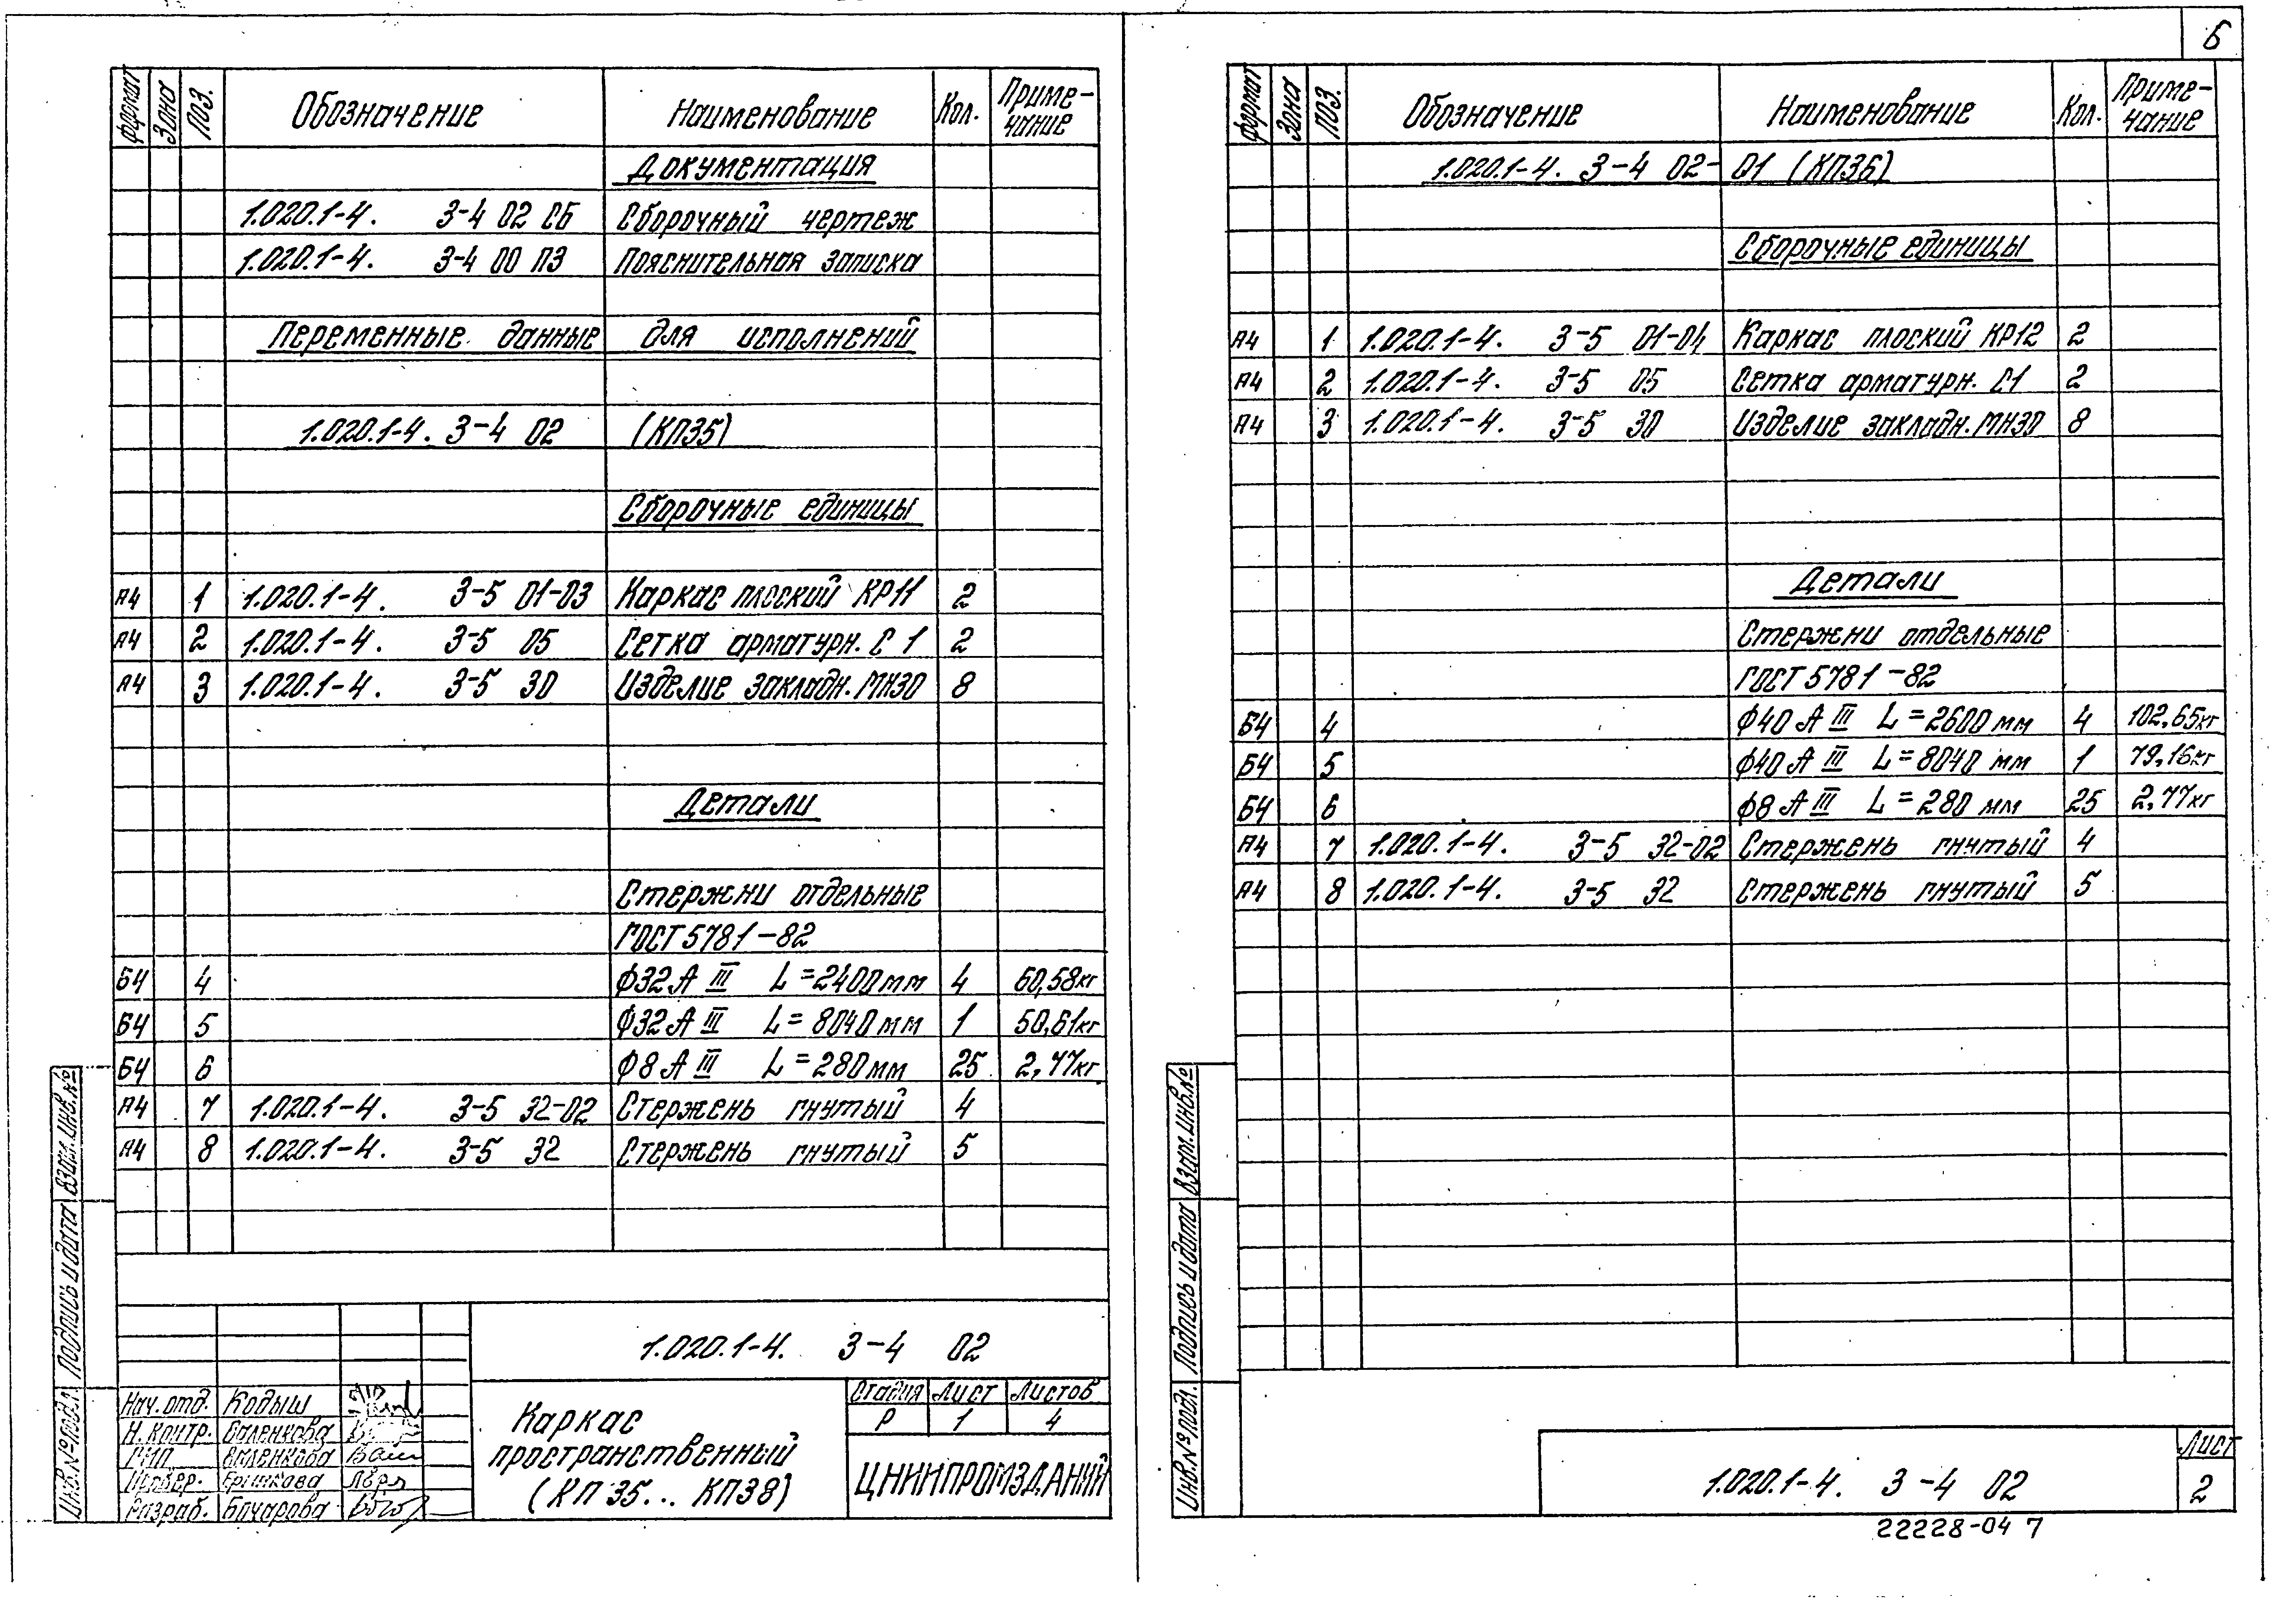 Формат Зона Поз. Обозначение Наименование Кол. Приме-
чание
Документация
1.020.1-4. 3-4 02 СБ Сборочный чертеж
1.020.1-4. 3-4 00 ПЗ Пояснительная записка
Переменные данные для исполнений
1.020.1-4. 3-4 02 (КП35)
Сборочные единицы
А4 1 1.020.1-4. 3-5 01-03 Каркас плоский КР11 2
А4 2 1.020.1-4. 3-5 05 Сетка арматурн. С 1 2
А4 3 1.020.1-4. 3-5 30 Изделие закладн. МН30 8
Детали
Стержни отдельные
ГОСТ 5781-82
Б4 4 ф32 А III L=2400мм 4 60,58кг
Б4 5 ф32 А III L=8040мм 1 50,61кг
Б4 6 ф8 А III L=280мм 25 2,77кг
А4 7 1.020.1-4. 3-5 32-02 Стержень гнутый 4
А4 8 1.020.1-4. 3-5 32 Стержень гнутый 5
Инв.№подл. Подпись и дата Взам.инв.№
1.020.1-4. 3-4 02
Нач. отд. Кодыш
Н. контр.
ГИП
Провер. Ершкова
Разраб. Бочарова
Каркас
пространственный
(КП 35... КП38)
Стадия Лист Листов
Р 1 4
ЦНИИПРОМЗДАНИЙ
6
Формат Зона Поз. Обозначение Наименование Кол. Приме-
чание
1.020.1-4. 3-4 02-01 (КП36)
Сборочные единицы
А4 1 1.020.1-4. 3-5 01-04 Каркас плоский КР12 2
А4 2 1.020.1-4. 3-5 05 Сетка арматурн. С1 2
А4 3 1.020.1-4. 3-5 30 Изделие закладн. МН30 8
Детали
Стержни отдельные
ГОСТ 5781-82
Б4 4 ф40 А III L=2600 мм 4 102,65кг
Б4 5 ф40 А III L=8040 мм 1 79,16кг
Б4 6 ф8 А III L=280 мм 25 2,77кг
А4 7 1.020.1-4. 3-5 32-02 Стержень гнутый 4
А4 8 1.020.1-4. 3-5 32 Стержень гнутый 5
Инв.№подл. Подпись и дата Взам.инв.№
1.020.1-4. 3-4 02
Лист
2
22228-04 7